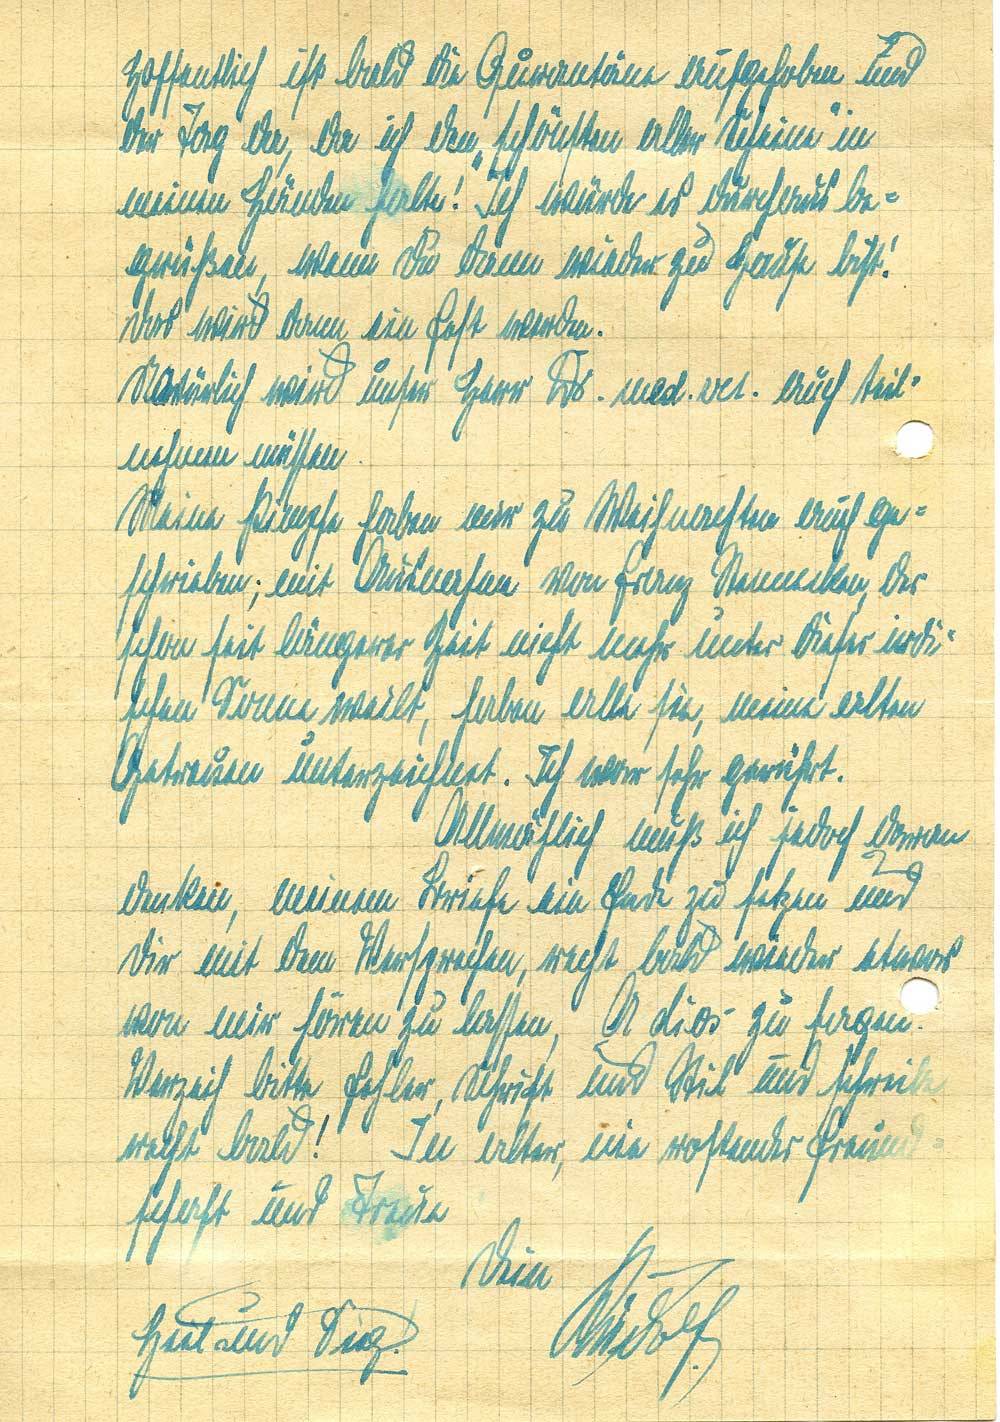 Hoffentlich ist bald die Quarantäne aufgehoben und
der Tag da, da ich den „schönsten aller Scheine" in
meinen Händen halte! Ich würde es durchaus be=
grüßen, wenn Du dann wieder zu Hause bist!
Das wird dann ein Fest werden.
Natürlich wird unser Herr Dr. med. vet. auch teil=
nehmen müssen.
Meine Pimpfe haben mir zu Weihnachten auch ge=
schrieben; mit Ausnahme von Franz, der
schon seit längerer Zeit nicht mehr unter dieser irdi=
schen Sonne weilt, haben alle sie, meine alten
Getreuen unterzeichnet. Ich war sehr gerührt.
Allmählich muß ich jedoch daran
denken, meinem Briefe ein Ende zu setzen und
Dir mit dem Versprechen, recht bald wieder etwas
von mir hören zu lassen, A dios zu sagen.
Verzeih bitte Fehler, Schrift und Stil und schreibe
recht bald! In alter, nie rostender Freund=
schaft und Treue
Dein
Heil und Sieg! Rudolf.